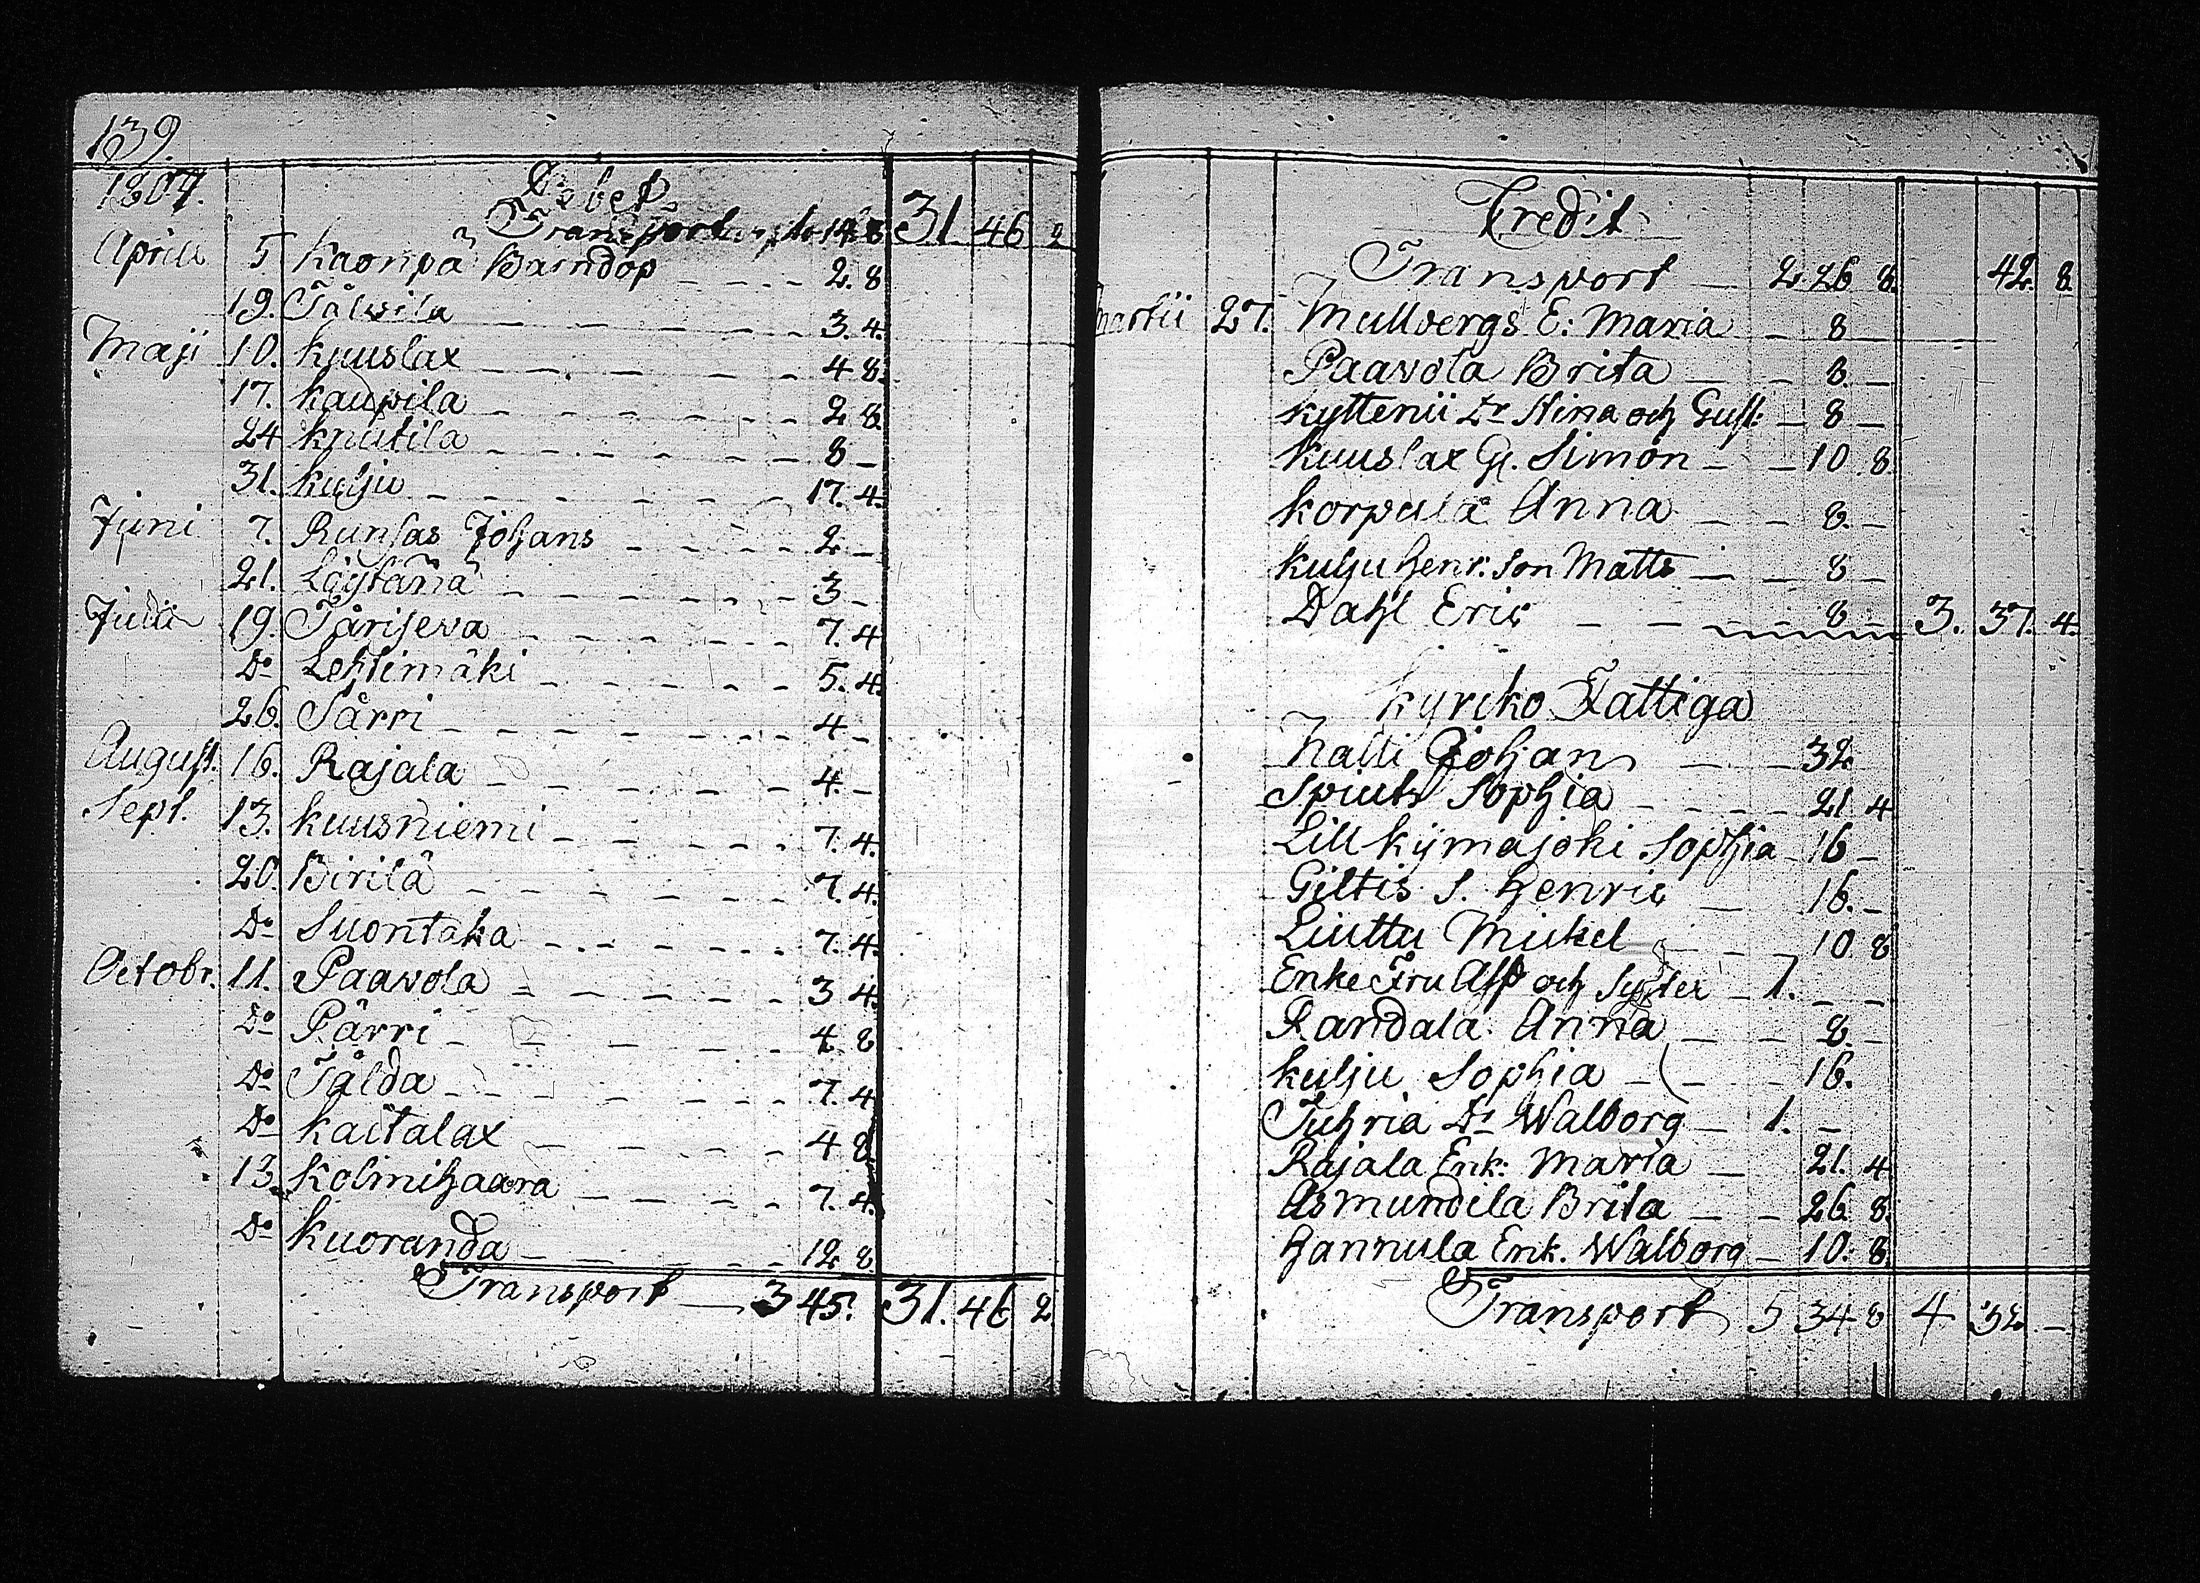 139.
1807.
Debet
Transport 14 8 31 46 2
Aprill 5 Kaonpä Barndop 2. 8
19. Tälvila 3. 4.
Maji 10. Kuuslax 4 8.
17. Kaupila 2 8.
24 Knutila 8 –
31. Kulju 17. 4.
Juni 7. Runsas Johans 2 –
21. Löytänä 3 –
Julii 19. Järiseva 7. 4
Do Lehtimäki 5. 4.
26. Särri 4 –
August. 16. Rajala 4. –
Sept. 13. Kuusniemi 7. 4.
20. Birilä 7. 4.
Do Suontaka 7. 4.
Octobr. 11. Paavola 3 4.
Do Pärri 4 8
Do Tälda 7. 4
Do Kaitalax 4 8
13. Kolmihaara 7. 4.
Do Kuoranda 12 8
Transport 3 45. 31. 46 2.
Credit
Transport 2 26 8. 42. 8.
Martii 27. Mullbergs E: Maria 8 –
Paavola Brita 8. –
Kyttenii Dr Stina och Gust: 8 –
Kuuslax Gl. Simon 10. 8.
Korpula Anna 8. –
Kulju Henr. Son Matts 8 –
Dahl Eric 8 – 3. 37. 4.
Kyrcko Fattiga
Nalli Johan 32
Sophia 21 4
Lill Kymajoki Sophia 16 –
Giltis S. Henric 16. –
Liuttu Mickel 10 8
Enke Fru Alp och Syster 1. – –
Randala Anna 8. –
Kulju Sophia 16.
Juhria Dr Walborg 1. –
Rajala Enk: Maria 21. 4
Asmundila Brita 26 8.
Hannula Enk. Walborg 10. 8.
Transport 5 34 8 4 32 –